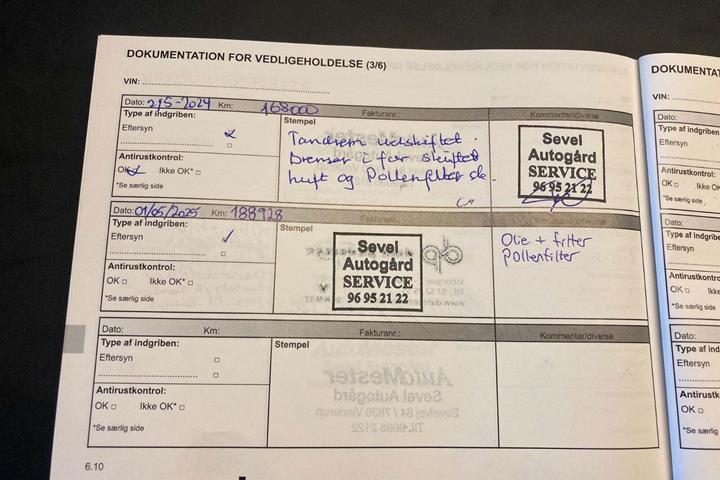 DOKUMENTATION FOR VEDLIGEHOLDELSE (3/6)
VIN:
Dato: 2/5-2024 Km: 168000 Fakturanr.: Kommentar/diverse
Type af indgriben:
Eftersyn
Stempel
Tandrem udskiftet.
Bremser i for skiftet
luft og Pollenfilter sk.
Sevel
Autogård
SERVICE
96 95 21 22
Antirustkontrol:
OK Ikke OK*
*Se særlig side
Dato: 01/05/2025 Km: 188928 Fakturanr.:
Type af indgriben:
Eftersyn
Stempel
Sevel
Autogård
SERVICE
96 95 21 22
Olie + filter
pollenfilter
Antirustkontrol:
OK Ikke OK*
*Se særlig side
Dato: Km: Fakturanr.: Kommentar/diverse
Type af indgriben:
Eftersyn
Stempel
Antirustkontrol:
OK Ikke OK*
*Se særlig side
6.10
DOKUMENTAT
VIN:
Dato:
Type af indgriben
Eftersyn
Antirustkontrol:
OK Ikke OK*
*Se særlig side
Dato:
Type af indgribe
Eftersyn
Antirustkontro
OK Ikke
*Se særlig side
Dato:
Type af ind
Eftersyn
Antirustk
OK
*Se særlig